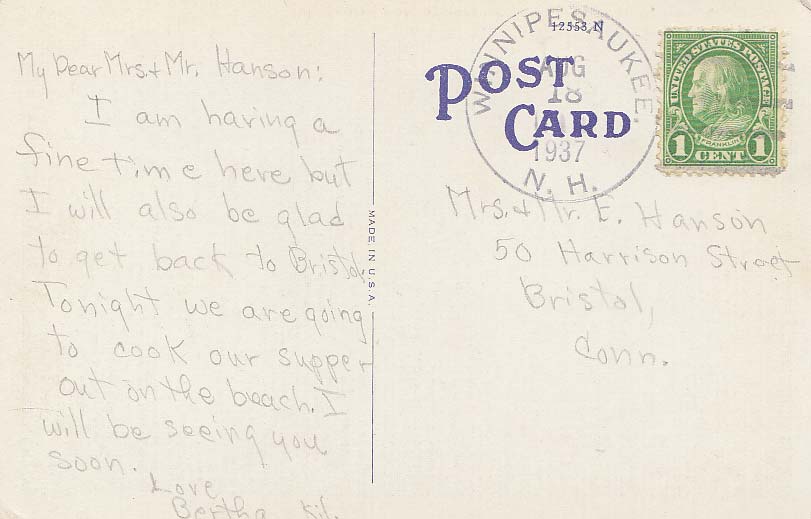 My Dear Mrs. + Mr. Hanson:
I am having a
fine time here but
I will also be glad
to get back to Bristol.
Tonight we are going
to cook our supper
out on the beach. I
will be seeing you
soon.
Love
Bertha
MADE IN U.S.A.
12553 N
POST
CARD
WINNIPESAUKEE.
AUG
18
1937
N. H.
UNITED STATES POSTAGE
FRANKLIN
1 CENT 1
Mrs. + Mr. E. Hanson
50 Harrison Street
Bristol,
Conn.